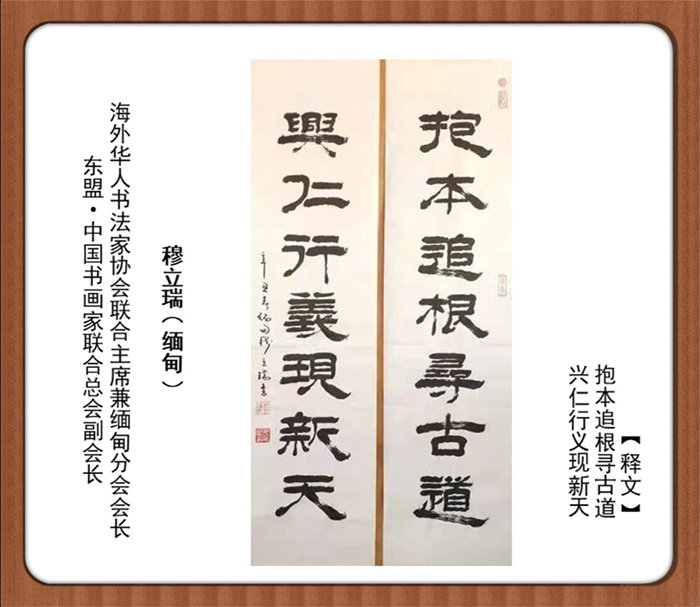 【释文】
抱本追根寻古道
兴仁行义现新天
抱本追根尋古道
興仁行義現新天
辛丑春缅甸穆立瑞书
穆立瑞（缅甸）
海外华人书法家协会联合主席兼缅甸分会会长
东盟·中国书画家联合总会副会长